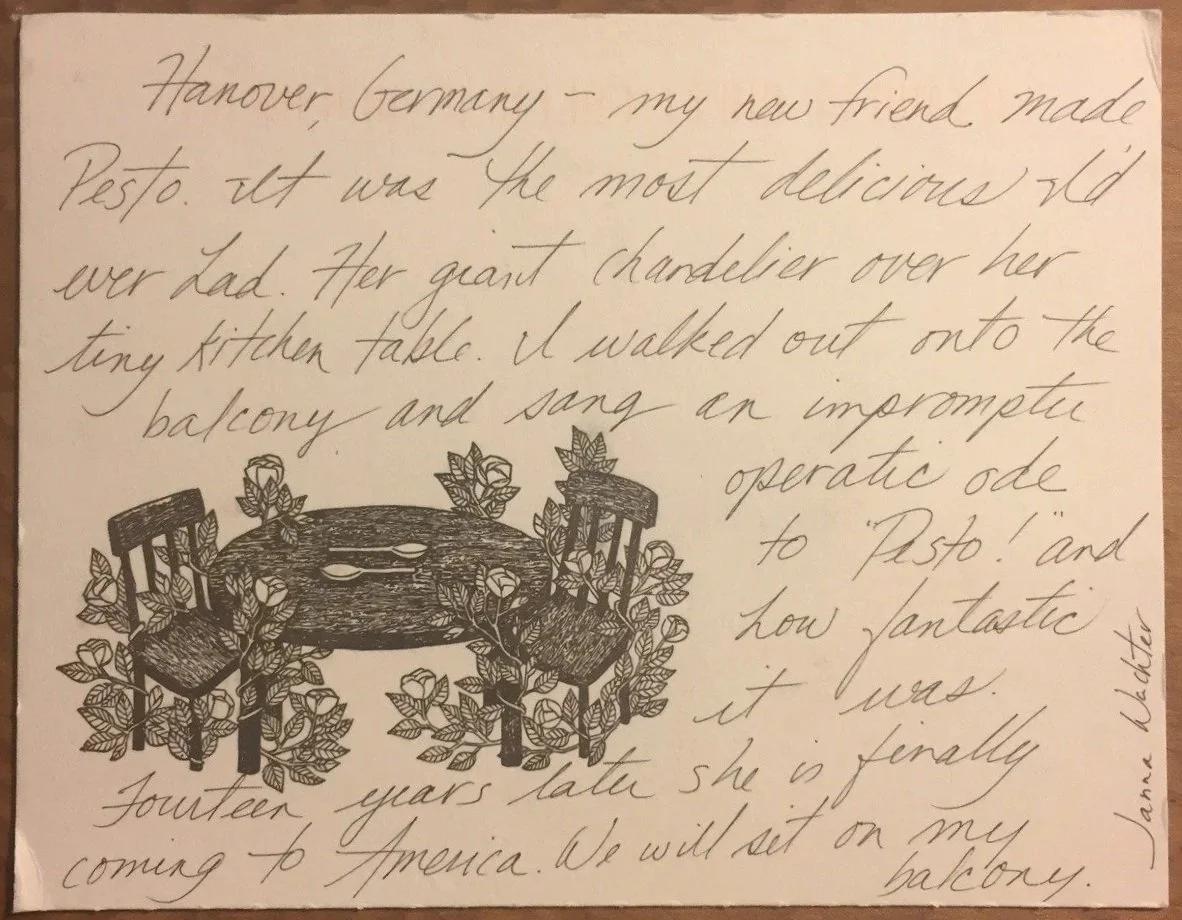 Hanover, Germany – my new friend made
Pesto. It was the most delicious I'd
ever had. Her giant chandelier over her
tiny kitchen table. I walked out onto the
balcony and sang an impromptu
operatic ode
to "Pesto!" and
how fantastic
it was.
Fourteen years later she is finally
coming to America. We will sit on my
balcony.
Janna Wachter